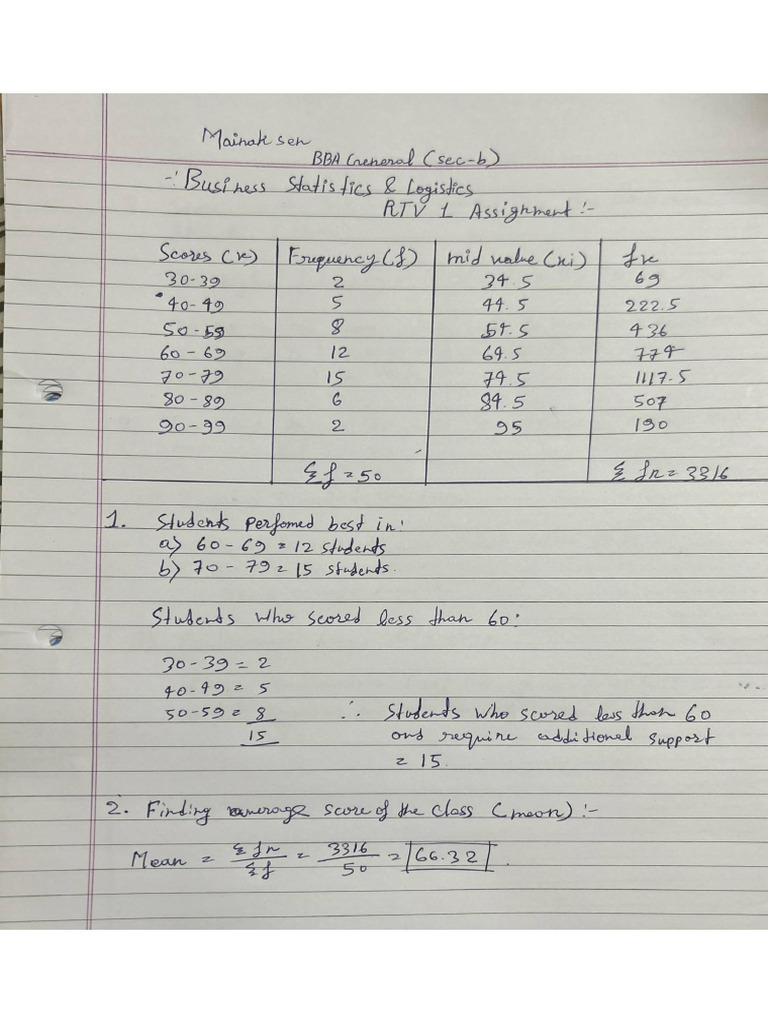 Mainak sen
BBA General (sec-b)
-: Business Statistics & Logistics
RTV 1 Assignment :-
Scores (x) Frequency (f) mid value (xi) fx
30-39 2 34.5 69
40-49 5 44.5 222.5
50-59 8 54.5 436
60-69 12 64.5 774
70-79 15 74.5 1117.5
80-89 6 84.5 507
90-99 2 95 190
Σf = 50 Σ fx = 3316
1. Students perfomed best in:
a) 60-69 = 12 students
b) 70-79 = 15 students.
Students who scored less than 60:
30-39 = 2
40-49 = 5
50-59 = 8 ∴ Students who scored less than 60
15 and require additional support
= 15.
2. Finding average score of the class (mean) :-
Mean = Σfx / Σf = 3316 / 50 = 66.32.